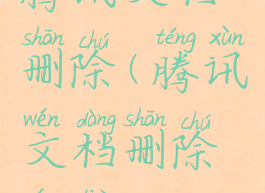 shān chú téng xùn
删除(腾讯
wén dàng shān chú
文档删除